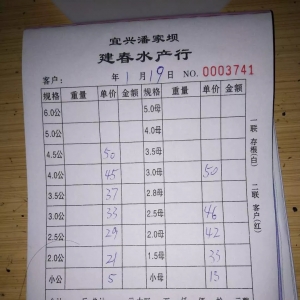 宜兴潘家坝
建春水产行
客户: 年 1 月 19 日 NO. 0003741
规格 重量 单价 金额 规格 重量 单价 金额
6.0公 5.0母
5.0公 4.0母
4.5公 50 3.5母
4.0公 45 3.0母 50
3.5公 37 2.8母
3.0公 33 2.5母 46
2.5公 29 2.0母 42
2.0公 21 1.5母 33
小公 5 小母 13
一联 存根(白)
二联 客户(红)